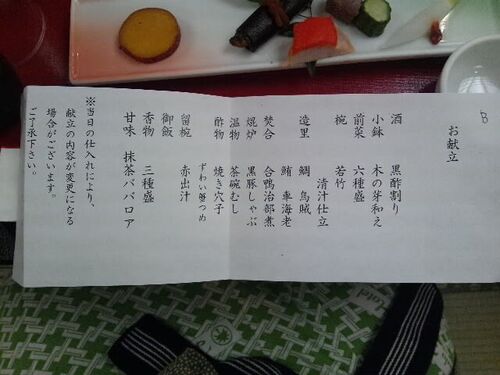 B
お献立
酒 黒酢割り
小鉢 木の芽和え
前菜 六種盛
椀 若竹
清汁仕立
造里 鯛 烏賊
鮪 車海老
焚合 合鴨治部煮
焜炉 黒豚しゃぶ
温物 茶碗むし
酢物 焼き穴子
ずわい蟹つめ
留椀 赤出汁
御飯
香物 三種盛
甘味 抹茶ババロア
※当日の仕入れにより、
献立の内容が変更になる
場合がございます。
ご了承下さい。